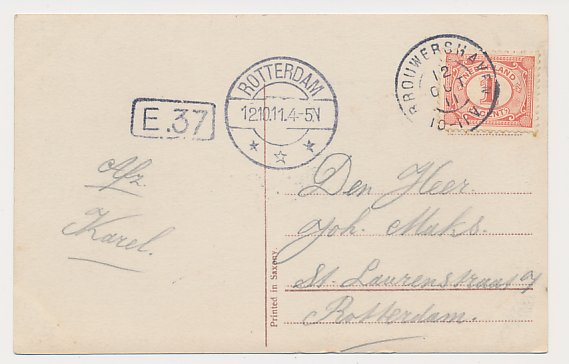 BROUWERSHAVEN
12
OCT
11
NEDERLAND
1
CENT
ROTTERDAM
12.10.11.4-5V
E.37
Afz.
Karel.
Den Heer
Joh. Maks.
St. Laurensstraat
Rotterdam.
Printed in Saxony